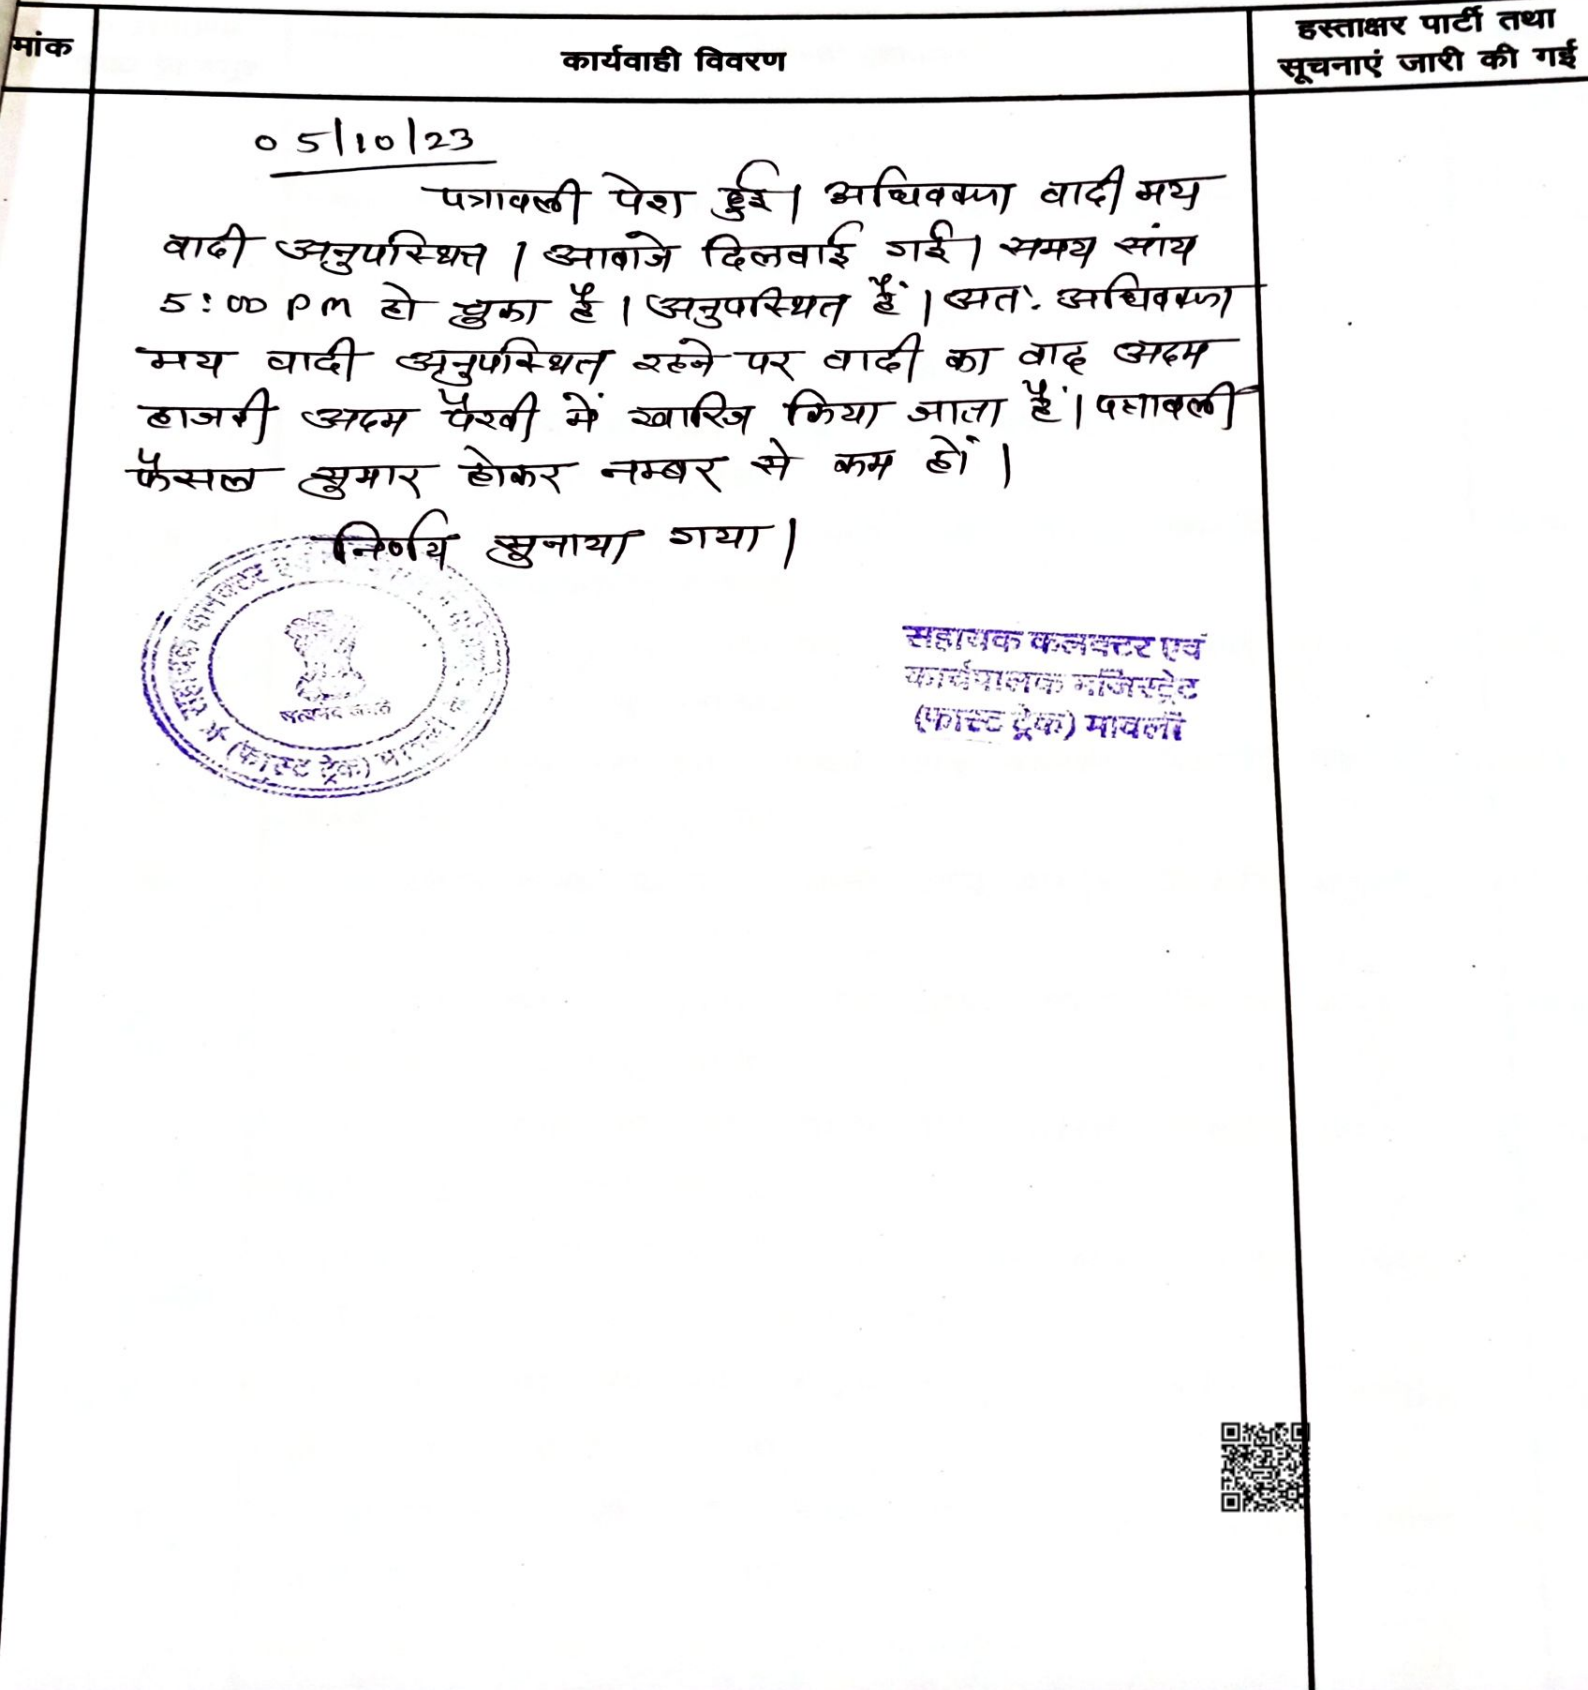 मांक
कार्यवाही विवरण
हस्ताक्षर पार्टी तथा
सूचनाएं जारी की गई
05/10/23
पत्रावली पेश हुई। अधिवक्ता वादी मय
वादी अनुपस्थित। आवाजे दिलवाई गई। समय सांय
5:00 pm हो चुका है। अनुपस्थित हैं। अतः अधिवक्ता
मय वादी अनुपस्थित रहने पर वादी का वाद अदम
हाजरी अदम पैरवी में खारिज किया जाता हैं। पत्रावली
फैसल सुमार होकर नम्बर से कम हों।
निर्णय सुनाया गया।
सहायक कलक्टर
(फास्ट ट्रेक)
सहायक कलक्टर एवं
कार्यपालक मजिस्ट्रेट
(फास्ट ट्रेक) मावली